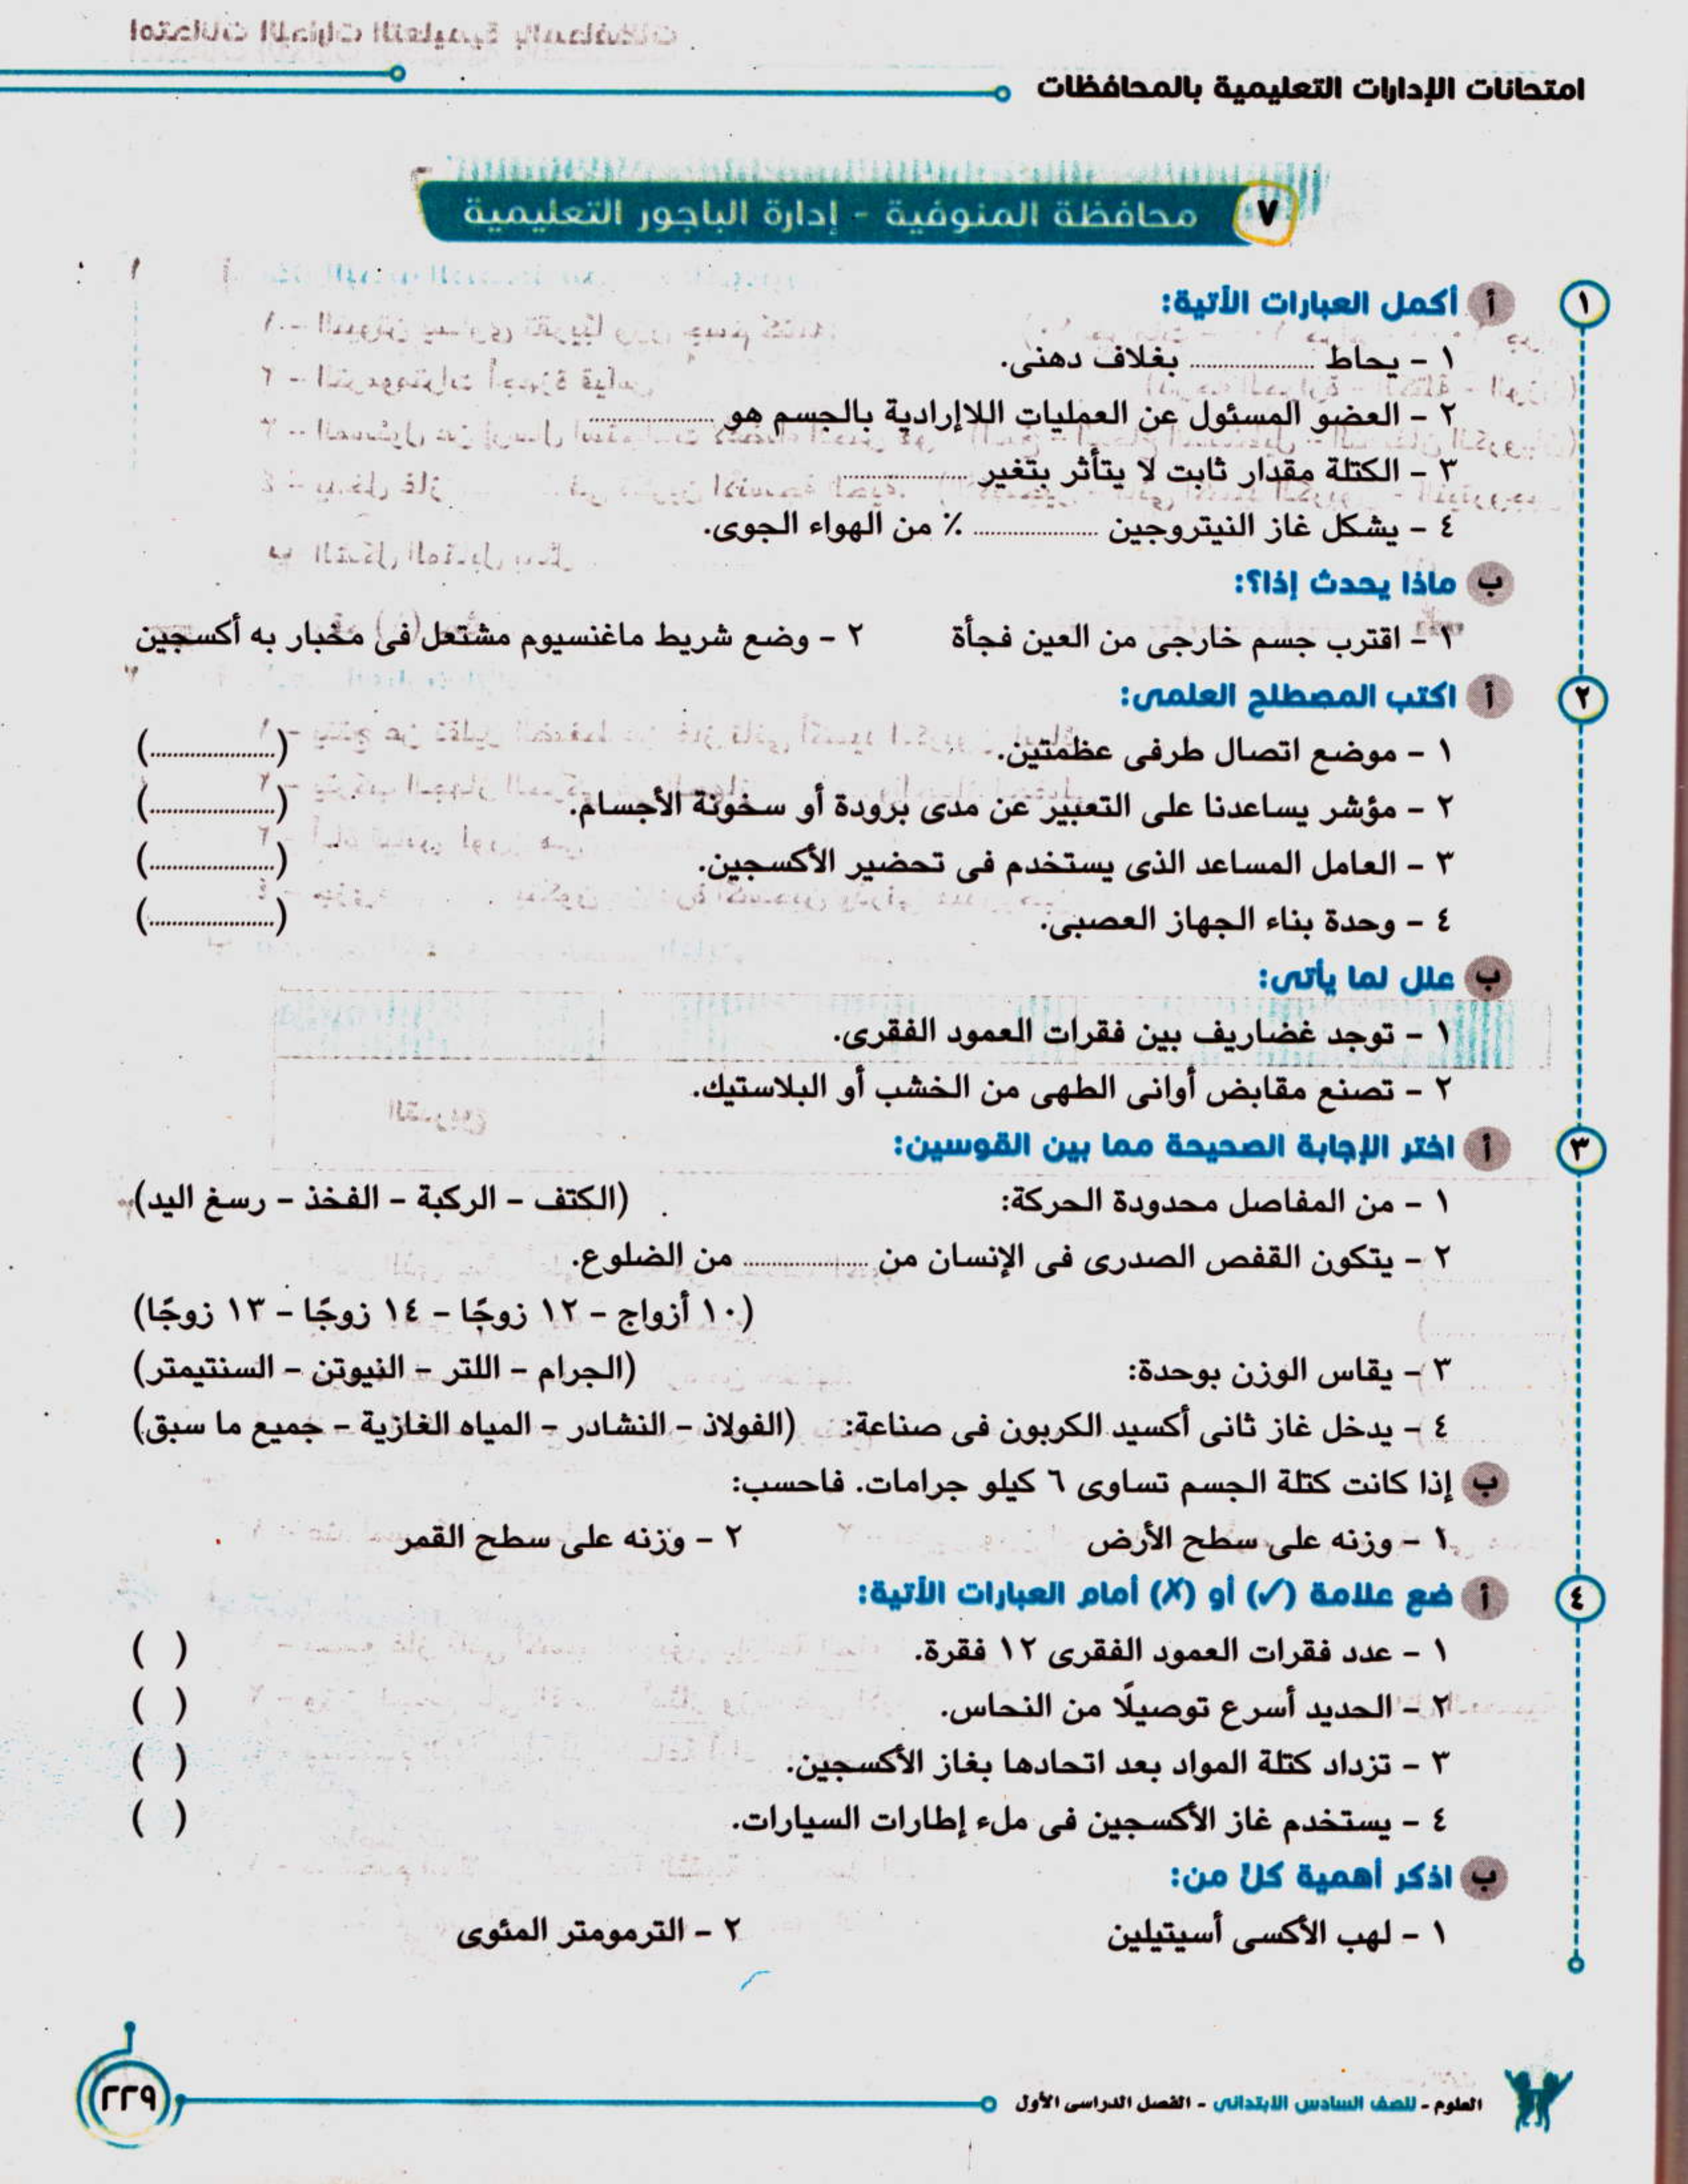 امتحانات الإدارات التعليمية بالمحافظات
٧ محافظة المنوفية - إدارة الباجور التعليمية
١ أ أكمل العبارات الأتية:
١ - يحاط .................... بغلاف دهنى.
٢ - العضو المسئول عن العمليات اللاإرادية بالجسم هو ....................
٣ - الكتلة مقدار ثابت لا يتأثر بتغير ....................
٤ - يشكل غاز النيتروجين .................... ٪ من الهواء الجوى.
ب ماذا يحدث إذا؟:
١ - اقترب جسم خارجى من العين فجأة ٢ - وضع شريط ماغنسيوم مشتعل فى مخبار به أكسجين
٢ أ اكتب المصطلح العلمى:
١ - موضع اتصال طرفى عظمتين. (....................)
٢ - مؤشر يساعدنا على التعبير عن مدى برودة أو سخونة الأجسام. (....................)
٣ - العامل المساعد الذى يستخدم فى تحضير الأكسجين. (....................)
٤ - وحدة بناء الجهاز العصبى. (....................)
ب علل لما يأتى:
١ - توجد غضاريف بين فقرات العمود الفقرى.
٢ - تصنع مقابض أوانى الطهى من الخشب أو البلاستيك.
٣ أ اختر الإجابة الصحيحة مما بين القوسين:
١ - من المفاصل محدودة الحركة: (الكتف - الركبة - الفخذ - رسغ اليد)
٢ - يتكون القفص الصدرى فى الإنسان من .................... من الضلوع.
(١٠ أزواج - ١٢ زوجًا - ١٤ زوجًا - ١٣ زوجًا)
٣ - يقاس الوزن بوحدة: (الجرام - اللتر - النيوتن - السنتيمتر)
٤ - يدخل غاز ثانى أكسيد الكربون فى صناعة: (الفولاذ - النشادر - المياه الغازية - جميع ما سبق)
ب إذا كانت كتلة الجسم تساوى ٦ كيلو جرامات. فاحسب:
١ - وزنه على سطح الأرض ٢ - وزنه على سطح القمر
٤ أ ضع علامة (✓) أو (✗) أمام العبارات الأتية:
١ - عدد فقرات العمود الفقرى ١٢ فقرة. ( )
٢ - الحديد أسرع توصيلًا من النحاس. ( )
٣ - تزداد كتلة المواد بعد اتحادها بغاز الأكسجين. ( )
٤ - يستخدم غاز الأكسجين فى ملء إطارات السيارات. ( )
ب اذكر أهمية كل من:
١ - لهب الأكسى أسيتيلين ٢ - الترمومتر المئوى
العلوم - للصف السادس الابتدائى - الفصل الدراسى الأول
٢٢٩